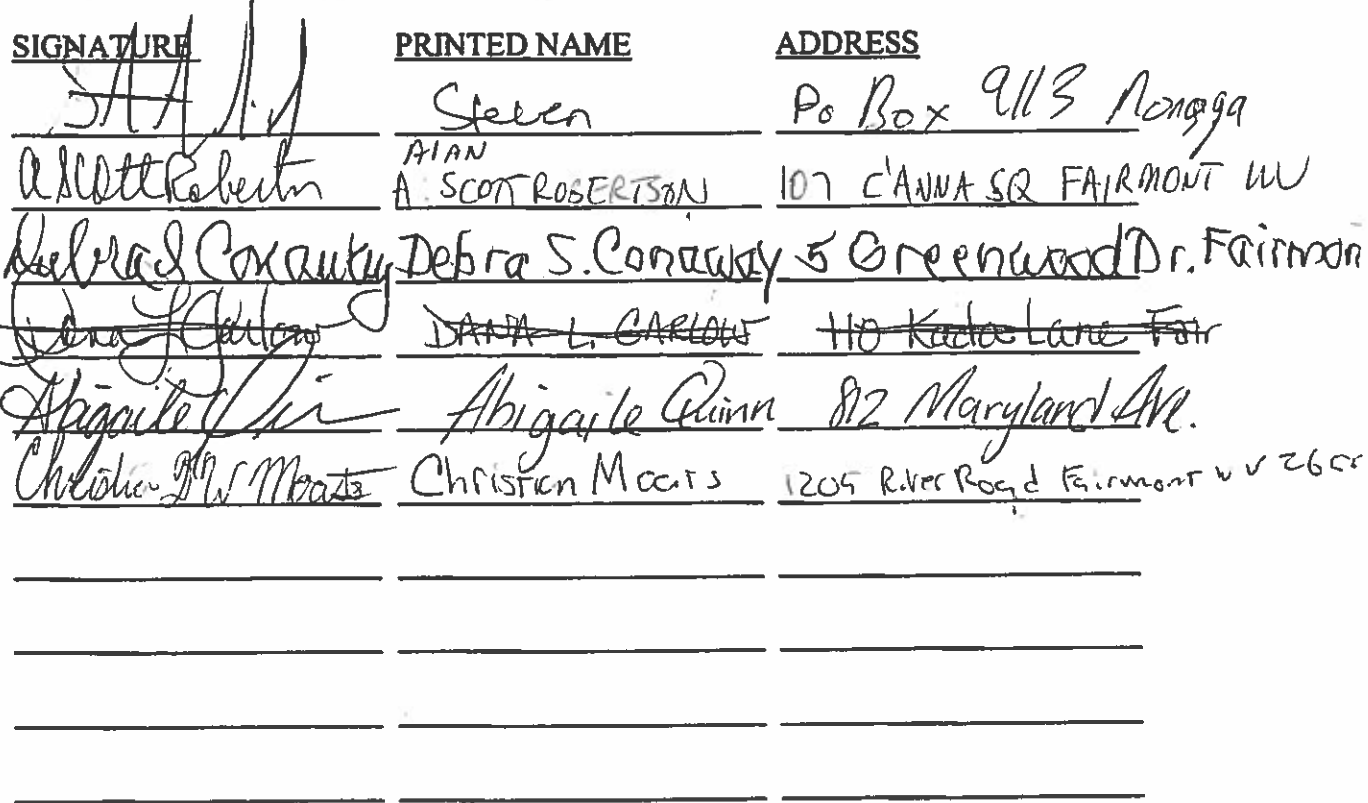 SIGNATURE PRINTED NAME ADDRESS
Steven Po Box 9113
AlAN
A Scott Robertson A. SCOTT ROBERTSON 107 C'ANNA SQ FAIRMONT WV
Debra S Conaway Debra S. Conaway 5 Greenwood Dr. Fairmon
Dana L Garlow DANA L. GARLOW 110 Lane Fair
Abigaile Abigaile Quinn 812 Maryland Ave.
Christian Moats Christian Moats 1209 River Road Fairmont WV